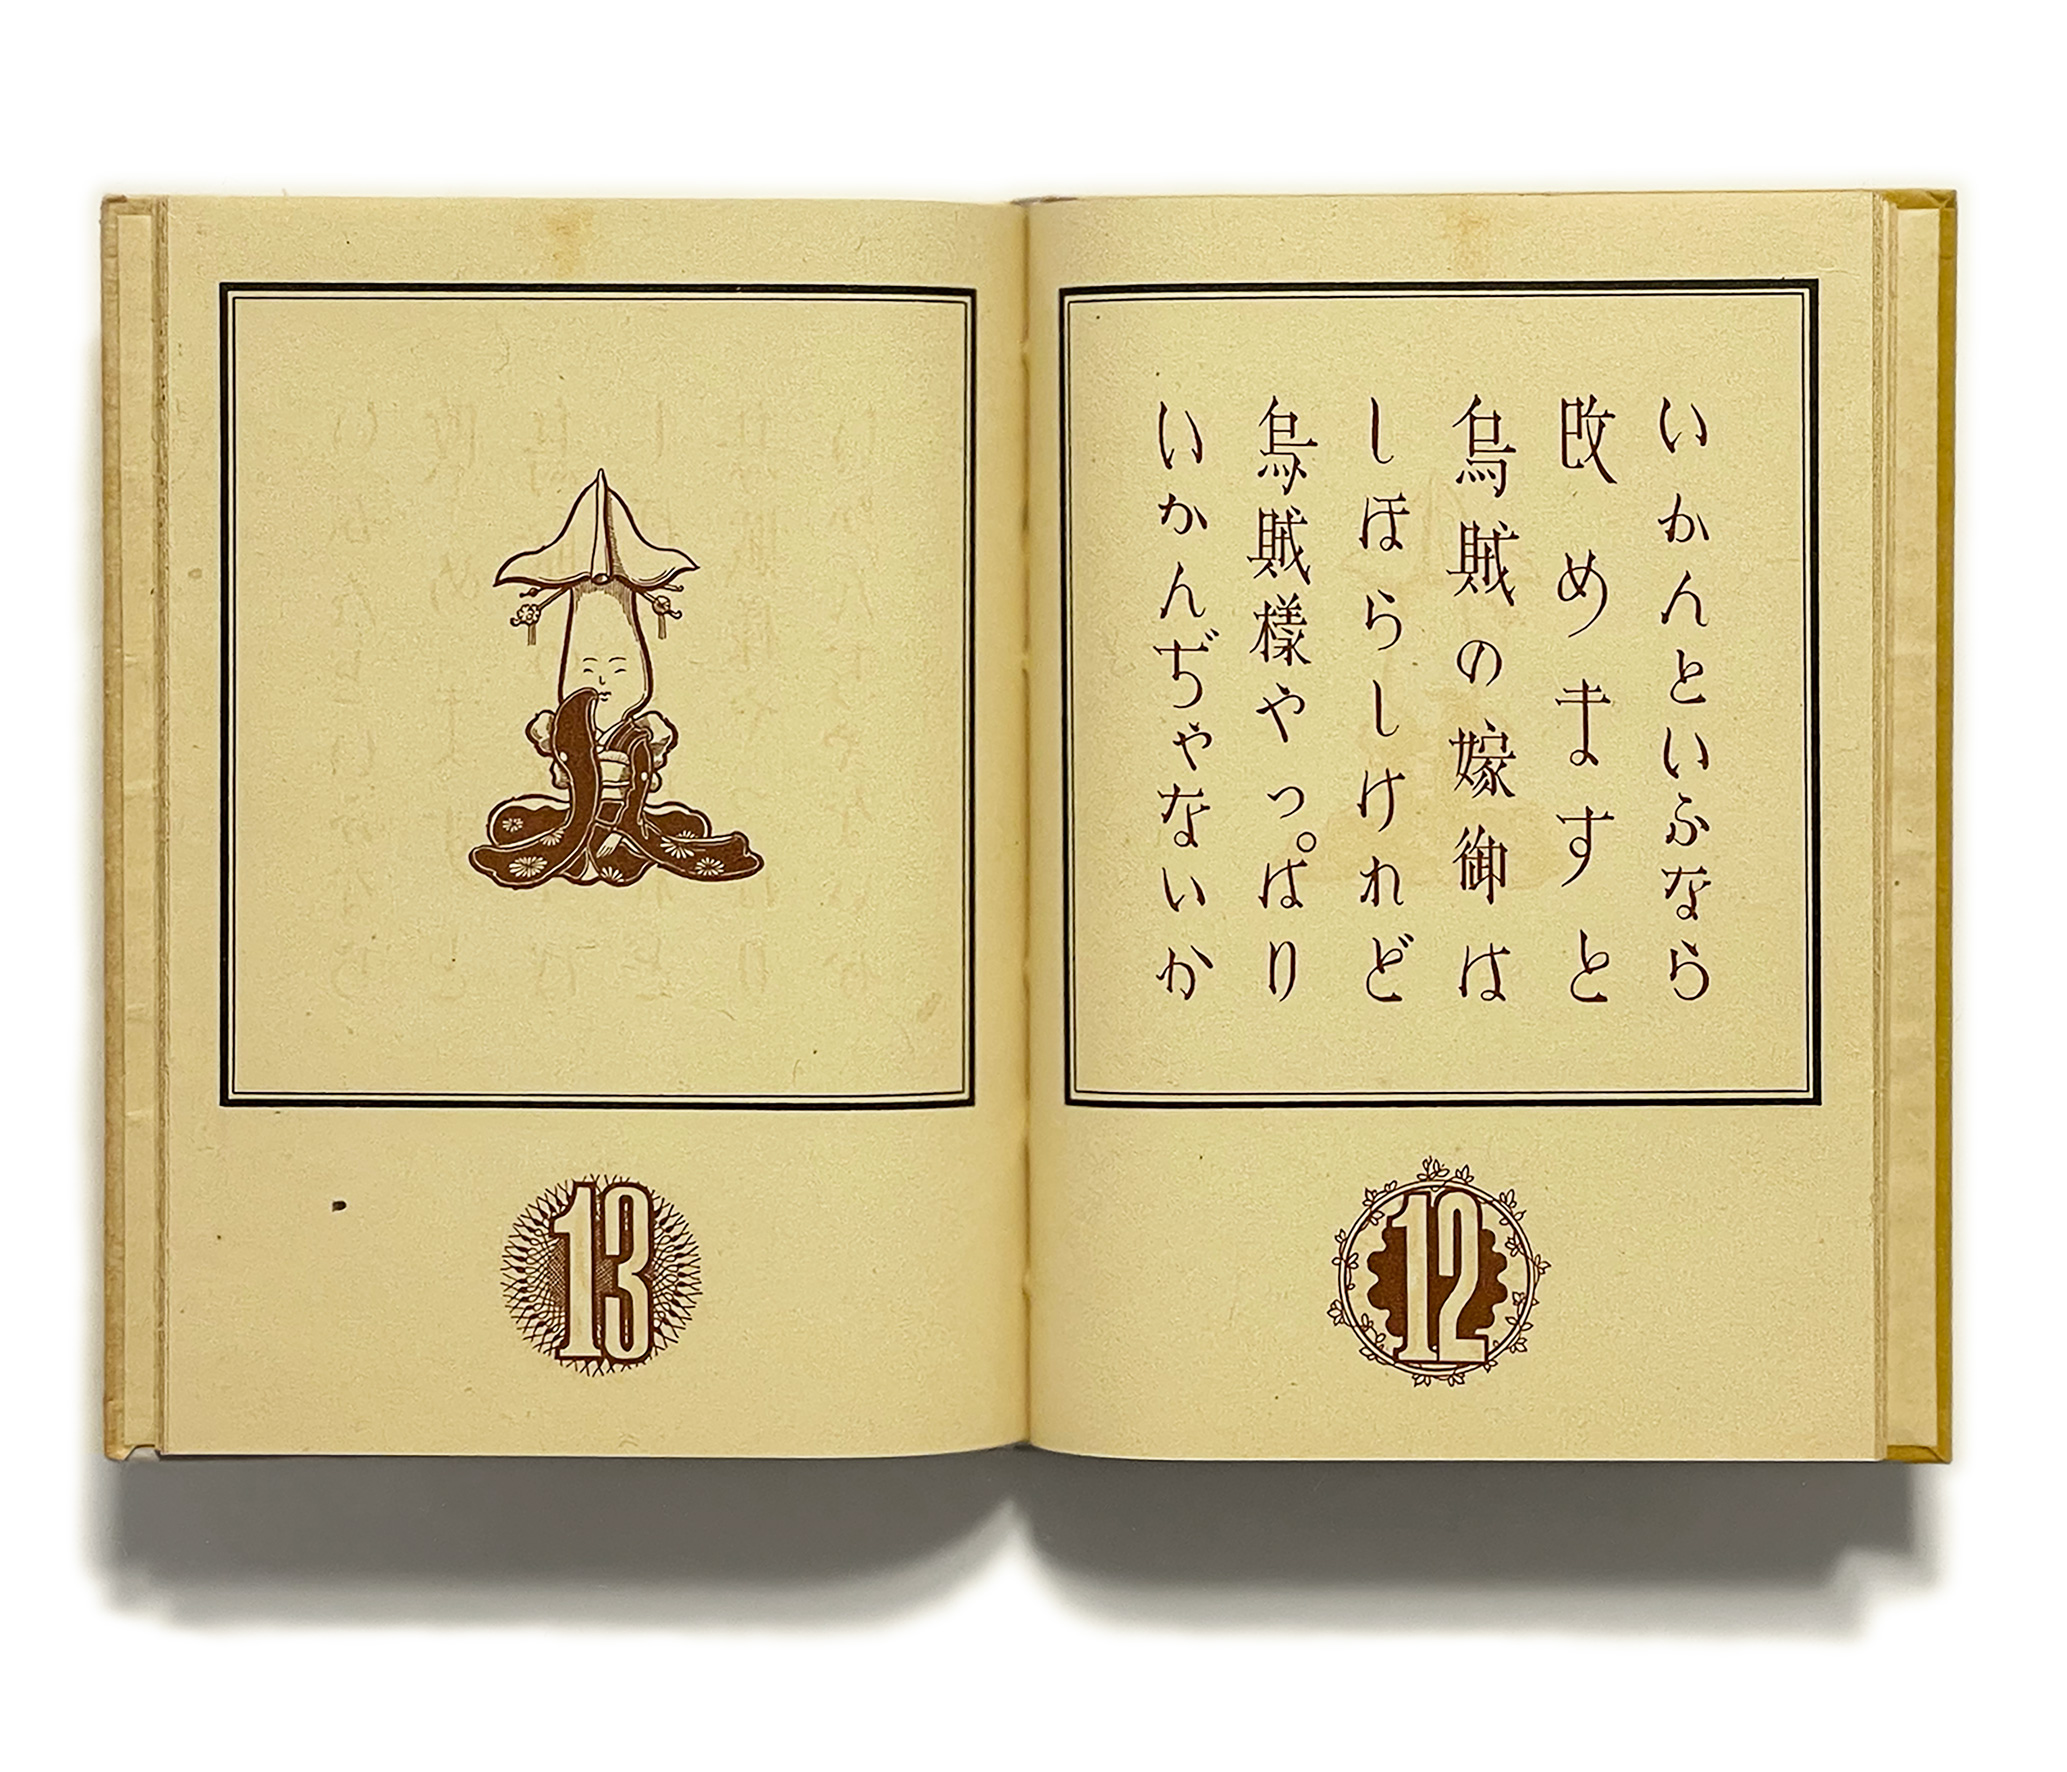 いかんといふなら
改めますと
烏賊の嫁御は
しほらしけれど
烏賊様やっぱり
いかんぢゃないか
12
13